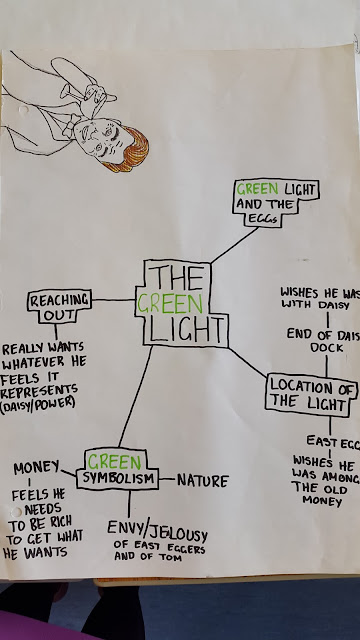 GREEN LIGHT
AND THE
EGGS
THE
GREEN
LIGHT
REACHING
OUT
REALLY WANTS
WHATEVER HE
FEELS IT
REPRESENTS
(DAISY/POWER)
WISHES HE WAS
WITH DAISY
END OF DAIS
DOCK
LOCATION OF
THE LIGHT
EAST EGG
WISHES HE
WAS AMONG
THE OLD
MONEY
GREEN
SYMBOLISM
MONEY
FEELS HE
NEEDS
TO BE RICH
TO GET WHAT
HE WANTS
NATURE
ENVY/JELOUSY
OF EAST EGGERS
AND OF TOM